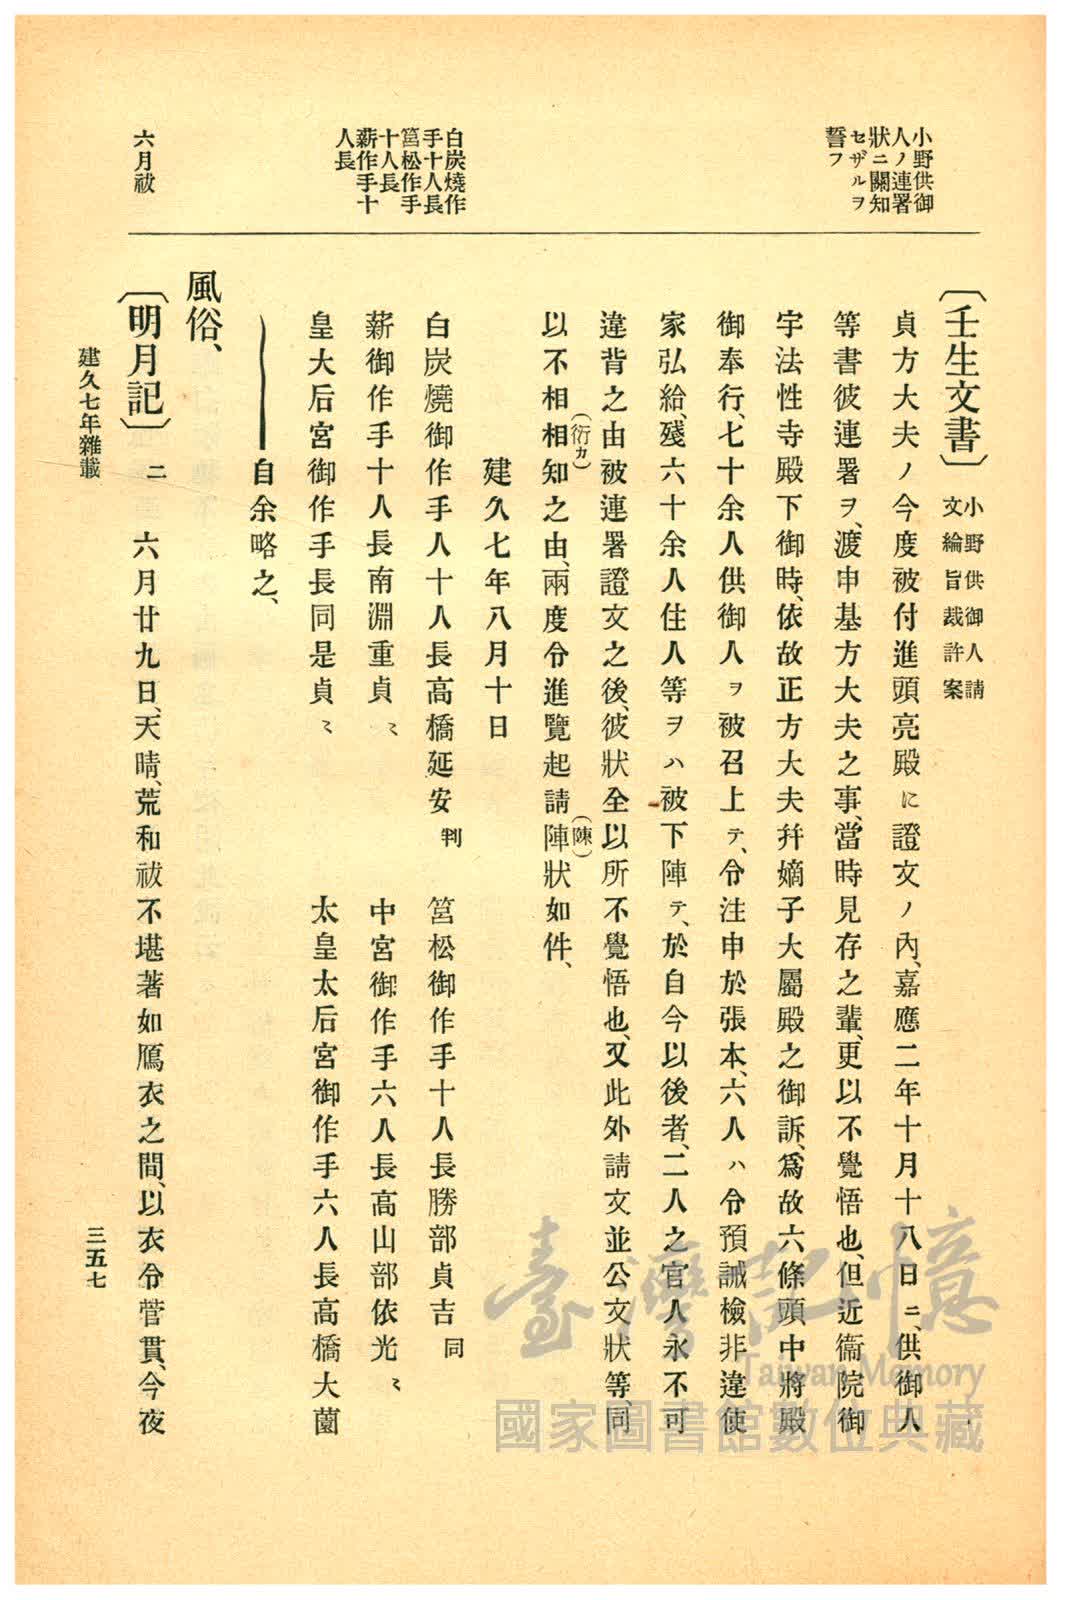 小野供御
人ノ連署
狀ニ關知
セザルヲ
誓フ
白炭燒作
手十人長
筥松作手
十人長
薪作手十
人長
六月祓
〔壬生文書〕 小野供御人請
文綸旨裁許案
貞方大夫ノ今度被付進頭亮殿ニ證文ノ內、嘉應二年十月十八日ニ、供御人
等書彼連署ヲ、渡申基方大夫之事、當時見存之輩、更以不覺悟也、但近衞院御
宇法性寺殿下御時、依故正方大夫幷嫡子大屬殿之御訴、爲故六條頭中將殿
御奉行、七十余人供御人ヲ被召上テ、令注申於張本、六人ハ令預誡檢非違使
家弘給、殘六十余人住人等ヲハ被下陣テ、於自今以後者、二人之官人永不可
違背之由被連署證文之後、彼狀全以所不覺悟也、又此外請文並公文狀等、同
以不相相(衍カ)知之由、兩度令進覽起請陣(陳)狀如件、
建久七年八月十日
白炭燒御作手人十人長高橋延安判 筥松御作手十人長勝部貞吉同
薪御作手十人長南淵重貞〻 中宮御作手六人長高山部依光〻
皇大后宮御作手長同是貞〻 太皇太后宮御作手六人長高橋大薗
自余略之、
風俗、
〔明月記〕 二 六月廿九日、天晴、荒和祓不堪著如鴈衣之間、以衣令菅貫、今夜
建久七年雜載
三五七
臺灣記憶
Taiwan Memory
國家圖書館數位典藏